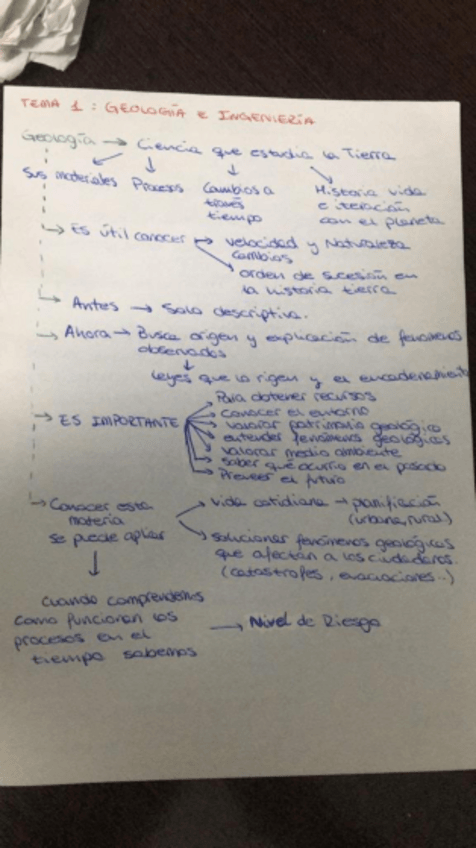 TEMA 1 : GEOLOGÍA E INGENIERÍA
Geología → Ciencia que estudia la Tierra
Sus materiales Procesos Cambios a Historia vida
través e iteración
tiempo con el planeta
→ Es útil conocer → velocidad y Naturaleza
cambios
orden de sucesión en
la historia tierra
→ Antes → Solo descriptiva.
→ Ahora → Busca origen y explicación de fenómenos
observados
Leyes que lo rigen y el encadenamiento
→ ES IMPORTANTE
Para obtener recursos
conocer el entorno
valorar patrimonio geológico
entender fenómenos geológicos
valorar medio ambiente
saber que ocurrio en el pasado
Proveer el futuro
→ Conocer esta → vida cotidiana → panifiación
materia (urbana, rural)
se puede apliar
solucionar fenómenos geológicos
que afectan a los ciudadanos.
(catástrofes, evacuaciones..)
cuando comprendemos
como funcionan los → Nivel de Riesgo
procesos en el
tiempo sabemos